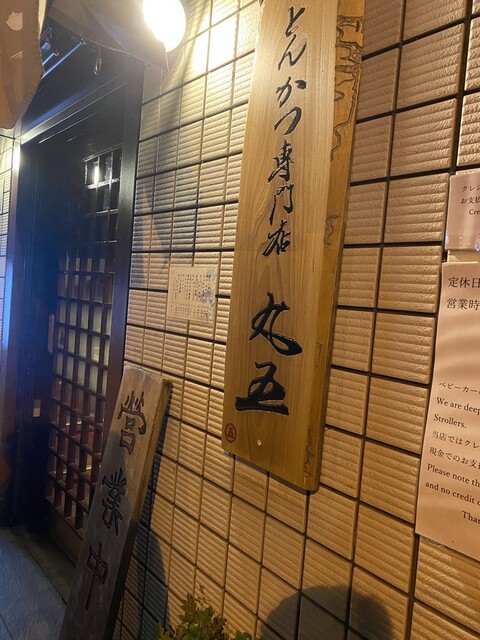 とんかつ専門店 丸五
営業中
クレジ
お支払
Cre
定休日
営業時
ベビーカーの
We are deep
Strollers.
当店ではクレ
現金でのお支
Please note th
and no credit c
Than